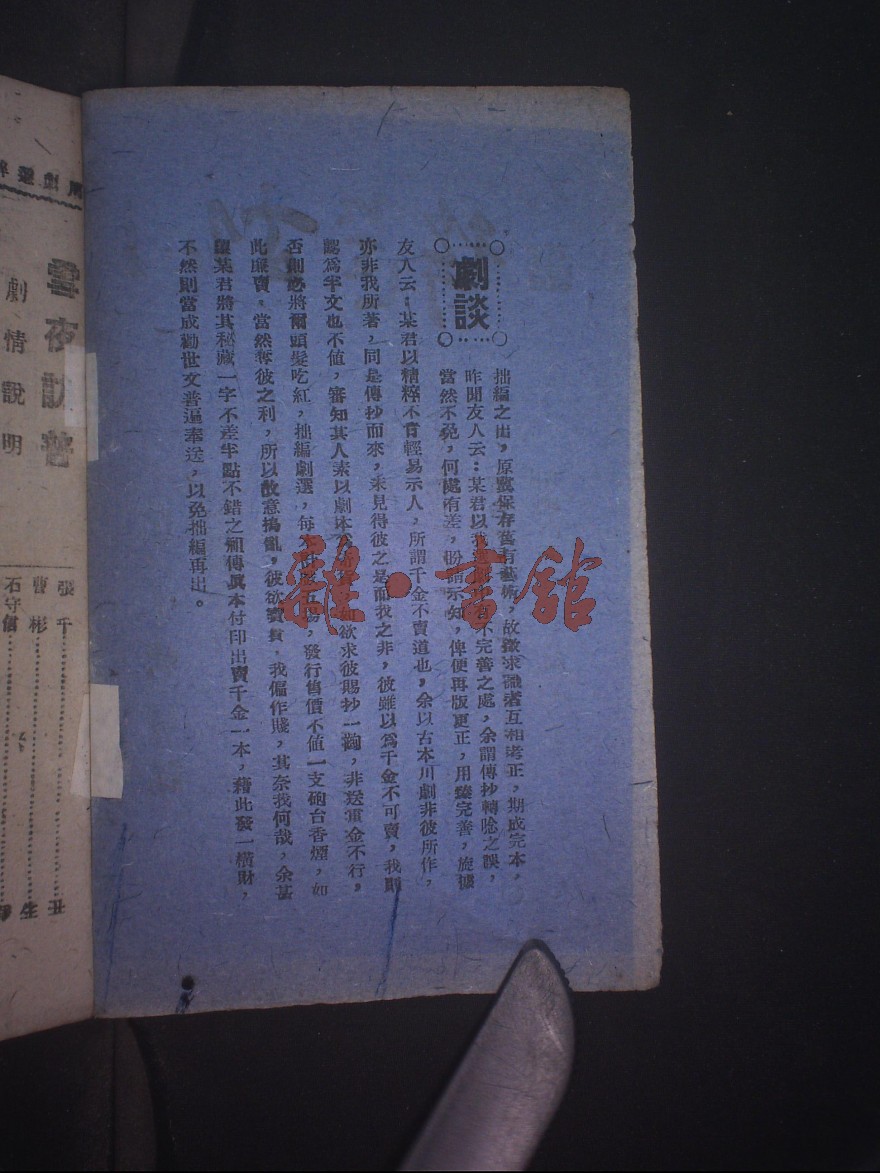 劇談
拙編之出，原爲保存舊有藝術，故徵求識者互相考正，期成完本，
昨聞友人云：某君以我選劇中有不完善之處，余謂傳抄轉唸之誤，
當然不免，何處有差，盼請示知，俾便再版更正，用臻完善，旋據
友人云：某君以精粹不肯輕易示人，所謂千金不賣道也，余以古本川劇非彼所作，
亦非我所著，同是傳抄而來，未見得彼之是而我之非，彼雖以爲千金不可賣，我則
認爲半文也不值，審知其人素以劇本 如欲求彼賜抄一齣，非送重金不行，
否則必將爾頭髮吃紅，拙編劇選，每 發行售價不値一支砲台香煙，如
此廉賣，當然奪彼之利，所以故意搗亂，彼欲賣貴，我偏作賤，其奈我何哉，余甚
望某君將其秘藏一字不差半點不錯之祖傳眞本付印出賣千金一本，藉此發一橫財，
不然則當成勸世文普遍奉送，以免拙編再出。
雪夜訪普
劇情說明
張千
曹彬
石守信
雜·書館